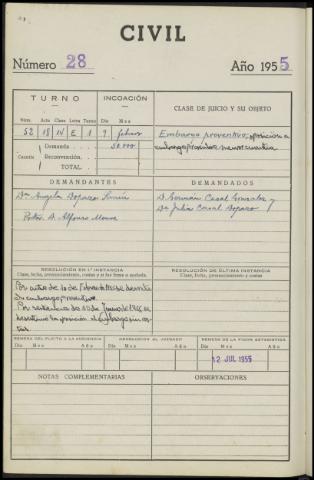 CIVIL
Número 28 Año 1955
TURNO
INCOACIÓN
CLASE DE JUICIO Y SU OBJETO
Núm. Acta Clase Letra Turno Día Mes
52 18 IV E 1 9 febrero
Cuantía
Demanda 50.000
Reconvención.
TOTAL
Embargo preventivo, oposición a
embargo menor cuantía
DEMANDANTES
DEMANDADOS
Dª Angela Dopazo
Potor. D. Alfonso
D. Germán Casal Gonzalez y
Dª Julia Casal Dopazo
RESOLUCIÓN EN 1.ª INSTANCIA
Clase, fecha, pronunciamiento, costas y si fue firme o apelada.
RESOLUCIÓN DE ÚLTIMA INSTANCIA
Clase, fecha, pronunciamiento y costas.
Por auto de 10 de Febrero 1955 se decreta
el embargo preventivo.
Por sentencia de 20 de Junio de 1955 se
desestima la oposición al embargo sin cos-
tas.
REMESA DEL PLEITO A LA AUDIENCIA
DEVOLUCIÓN AL JUZGADO
REMESA DE LA FICHA ESTADÍSTICA
Día Mes Año Día Mes Año Día Mes Año
12 JUL 1955
NOTAS COMPLEMENTARIAS
OBSERVACIONES